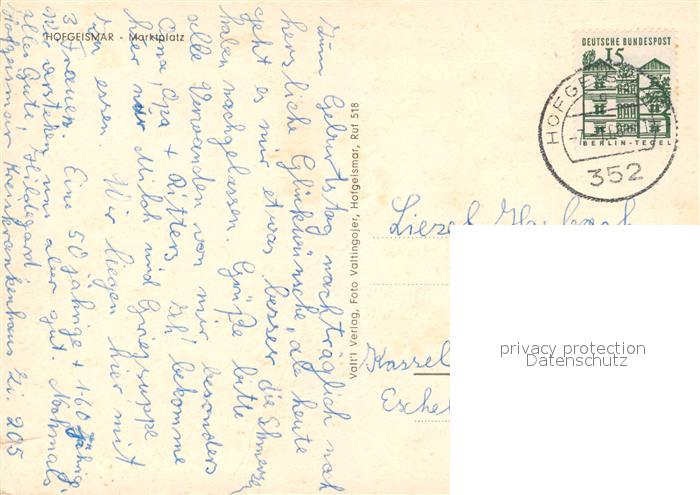 HOFGEISMAR - Marktplatz
Zum Geburtstag nachträglich noch
herzliche Glückwünsche, da heute
geht es mir etwas besser die Schmerzen
haben nachgelassen. Grüße bitte
alle Verwanden von mir besonders
Oma, Opa + Ritters. Ich bekomme
hier nur Milch und Griessuppe
zu essen. Wir liegen hier mit
3 Frauen. Eine 50 jährige + 1 60 jährige
Wir verstehen uns aber gut. Nochmals
alles Gute, Hildegard
Hofgeismar Kreiskrankenhaus Zi. 205
Valtri Verlag, Foto Valtingojer, Hofgeismar, Ruf 518
DEUTSCHE BUNDESPOST
15
BERLIN-TEGEL
HOFGEISMAR
352
Liezel
Kassel
Esche
privacy protection
Datenschutz